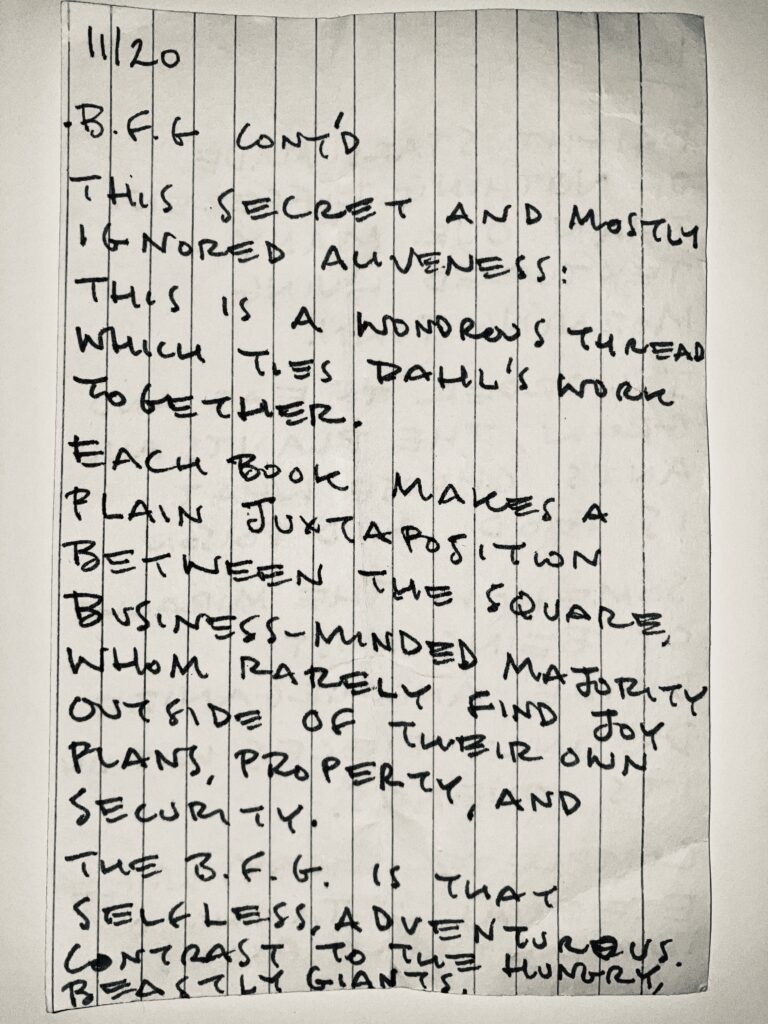 11/20
·B.F.G CONT'D
THIS SECRET AND MOSTLY
IGNORED ALIVENESS:
THIS IS A WONDROUS THREAD
WHICH TIES DAHL'S WORK
TOGETHER.
EACH BOOK MAKES A
PLAIN JUXTAPOSITION
BETWEEN THE SQUARE,
BUSINESS-MINDED MAJORITY
WHOM RARELY FIND JOY
OUTSIDE OF THEIR OWN
PLANS, PROPERTY, AND
SECURITY.
THE B.F.G. IS THAT
SELFLESS, ADVENTUROUS.
CONTRAST TO THE HUNGRY,
BEASTLY GIANTS.